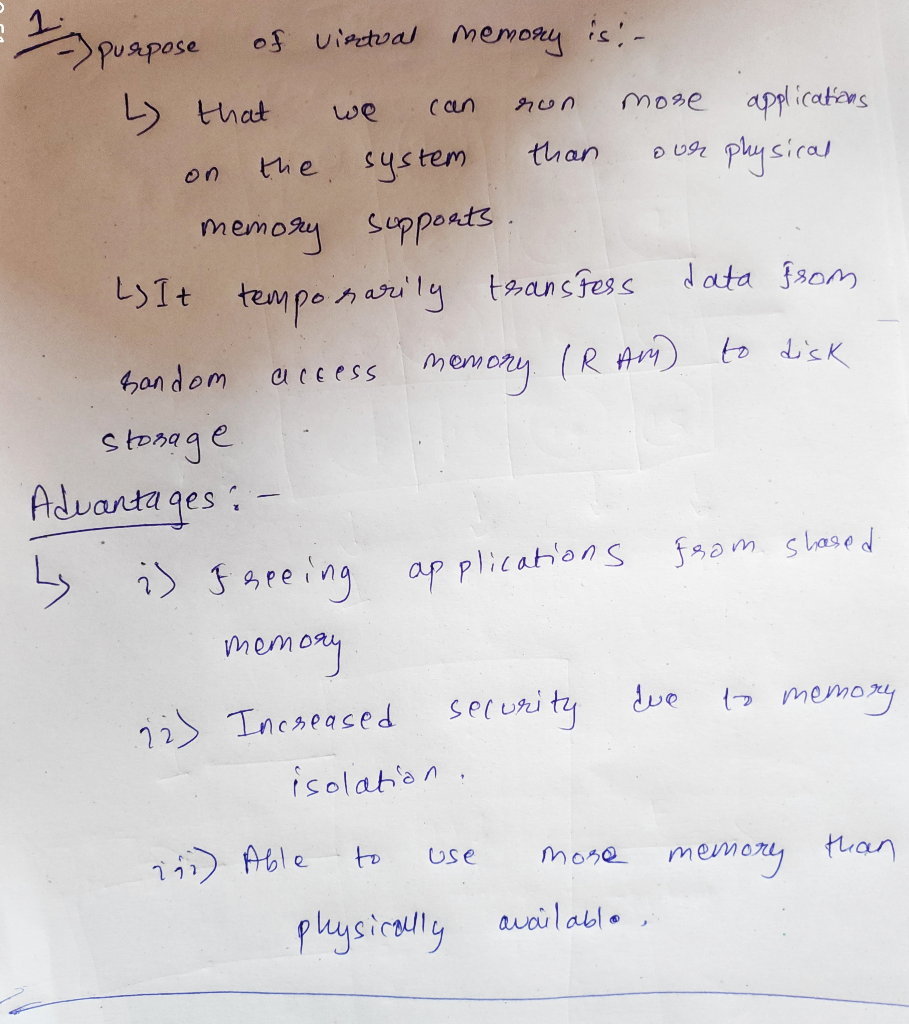 1.
→ purpose of virtual memory is:-
↳ that we can run more applications
on the system than our physical
memory supports.
↳ It temporarily transfers data from
random access memory (RAM) to disk
storage
Advantages :-
↳ i) Freeing applications from shared
memory
ii) Increased security due to memory
isolation.
iii) Able to use more memory than
physically available.